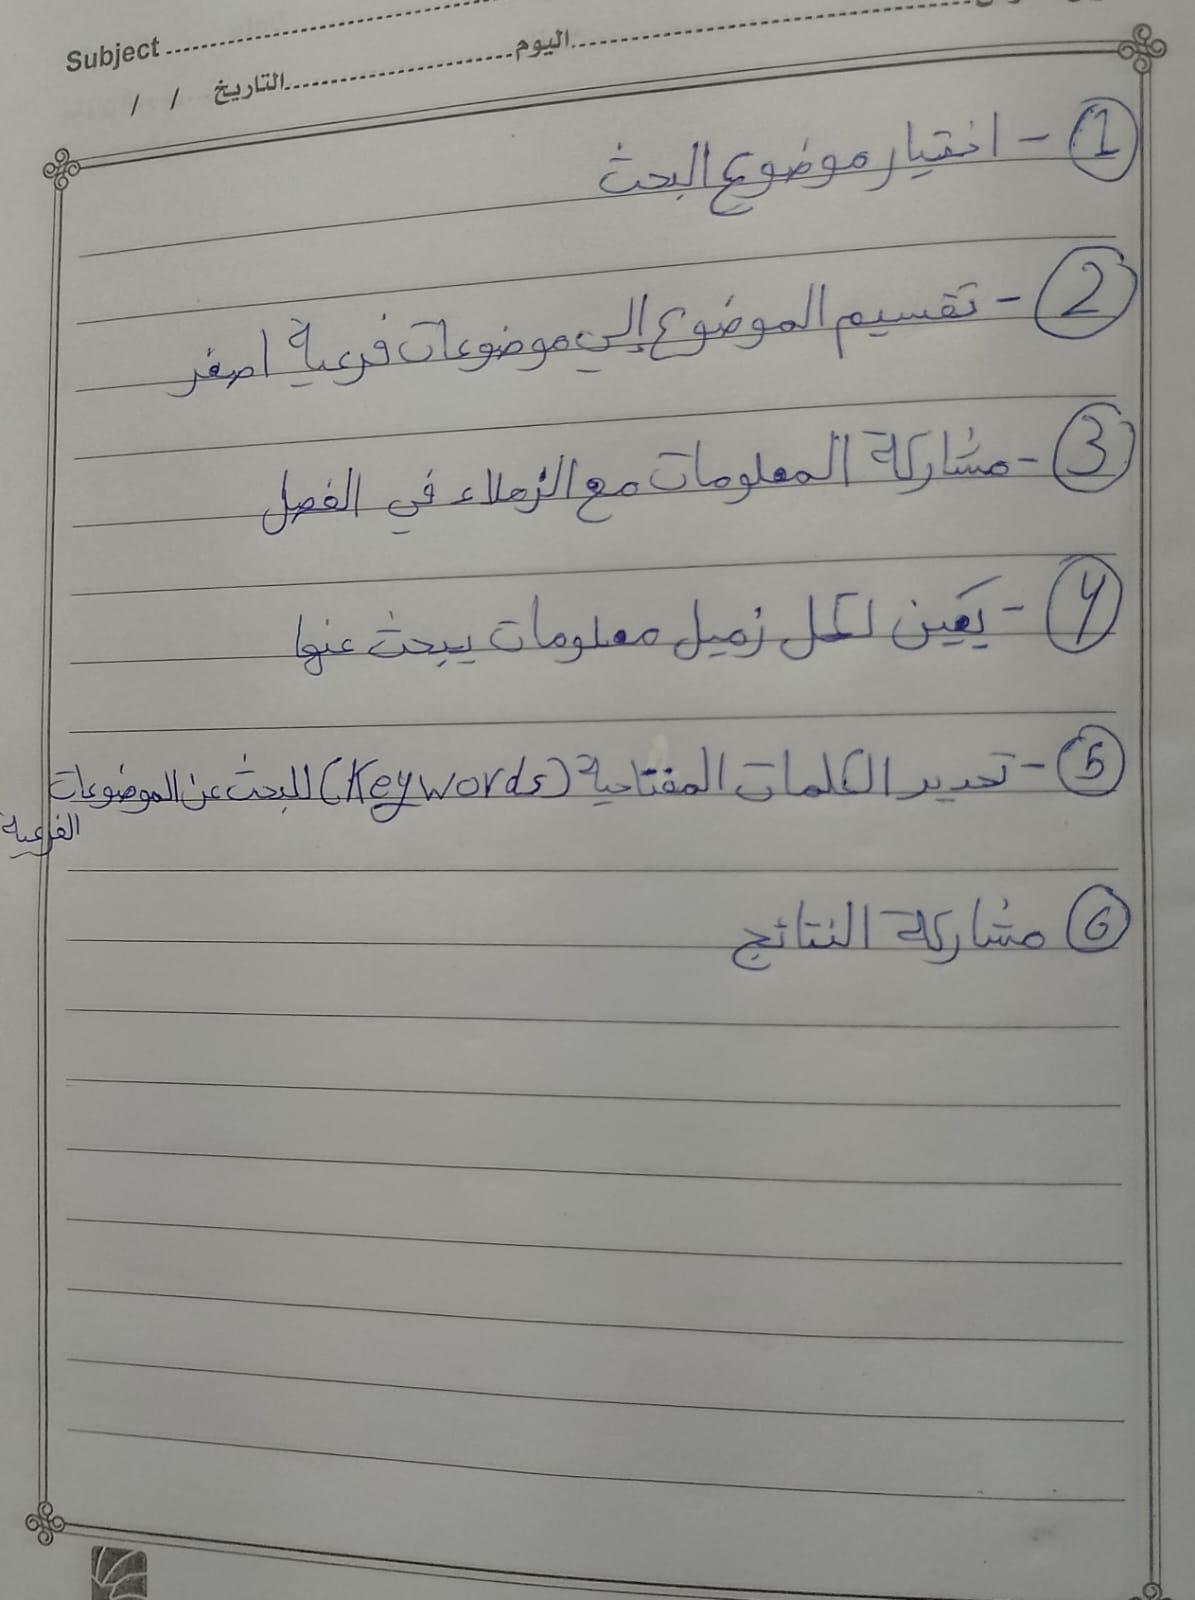 Subject
اليوم
التاريخ / /
1 - اختيار موضوع البحث
2 - تقسيم الموضوع إلي موضوعات فرعية اصغر
3 - مشاركة المعلومات مع الزملاء في الفصل
4 - يعين لكل زميل معلومات يبحث عنها
5 - تحديد الكلمات المفتاحية (Keywords) للبحث عن الموضوعات
الفرعية
6 مشاركة النتائج